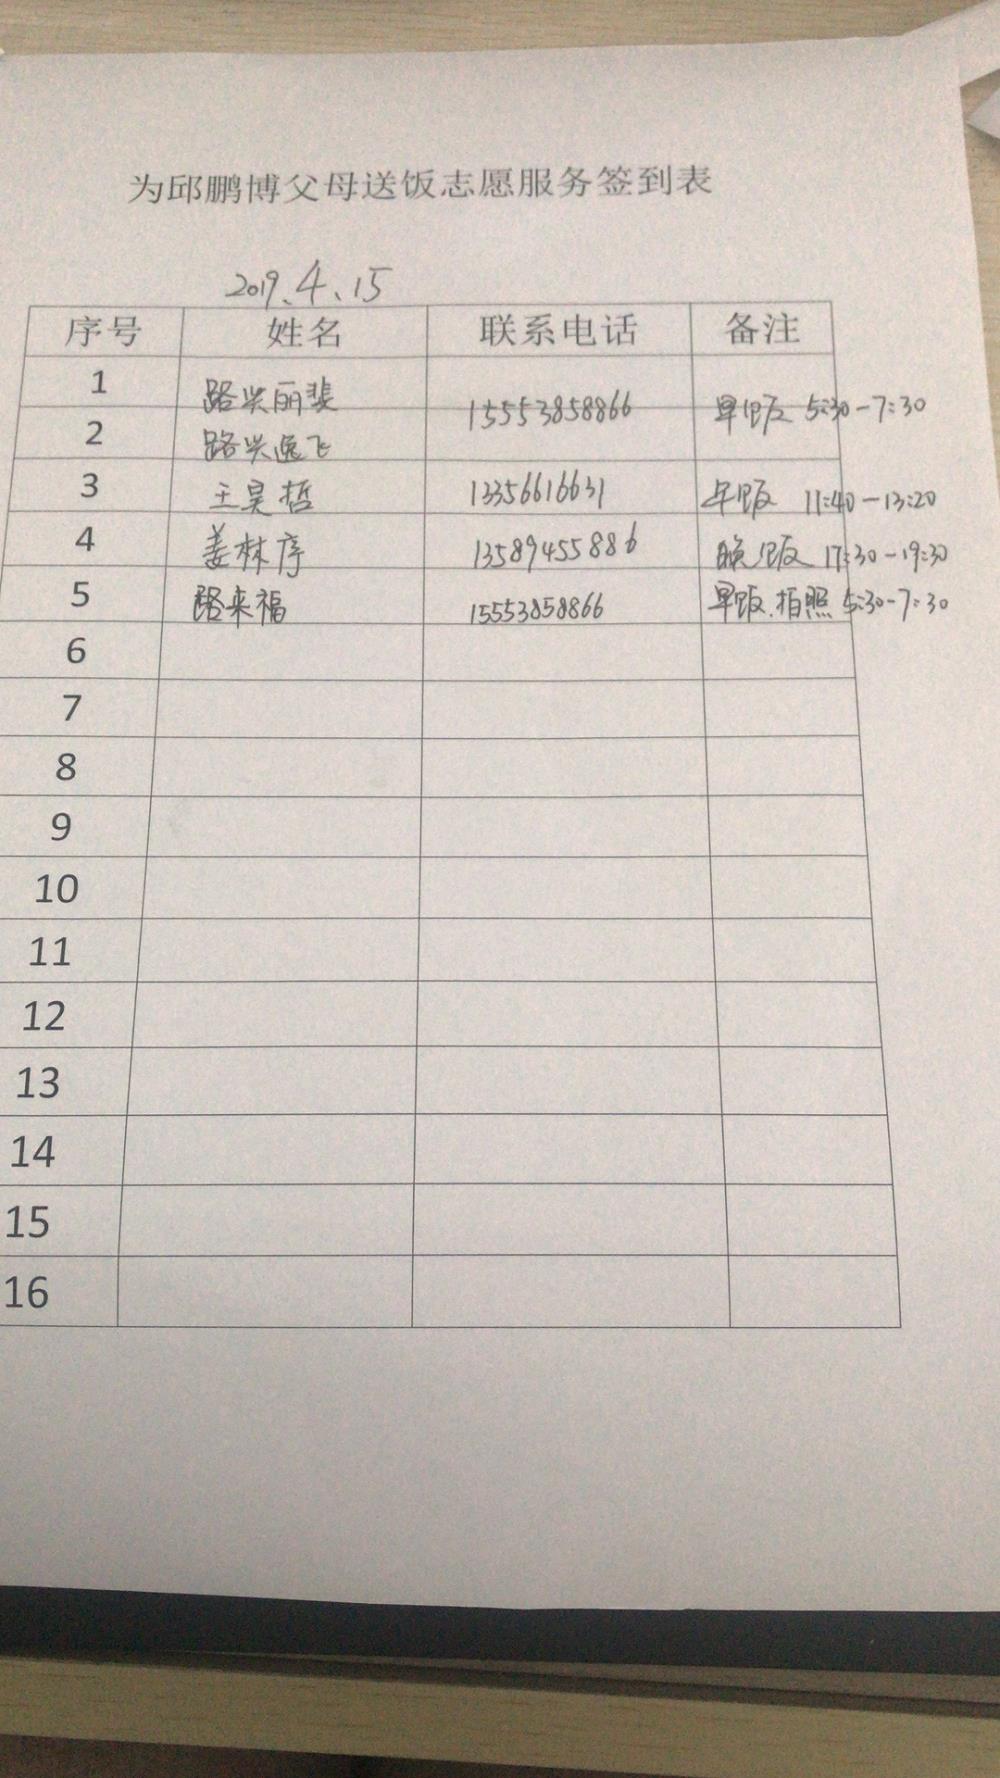 为邱鹏博父母送饭志愿服务签到表
2019.4.15
序号 姓名 联系电话 备注
1 路兴丽裴
15553858866 早饭 5:30-7:30
2 路兴逸飞
3 王昊哲 13356616631 午饭 11:40-13:20
4 姜林序 13589455886 晚饭 17:30-19:30
5 路来福 15553858866 早饭.拍照 5:30-7:30
6
7
8
9
10
11
12
13
14
15
16